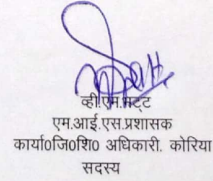 व्ही.एम.भट्ट
एम.आई.एस.प्रशासक
कार्या0जि0शि0 अधिकारी, कोरिया
सदस्य